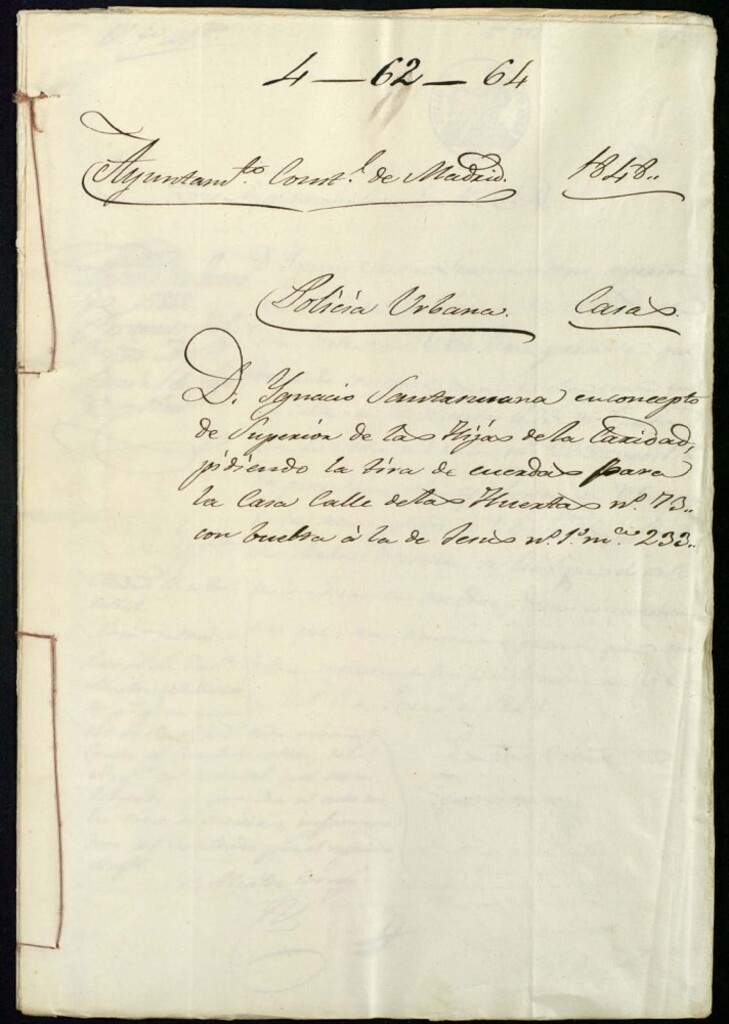 4 — 62 — 64
Ayuntam.to Const.l de Madrid. 1848..
Policia Urbana. Casas.
D. Ygnacio Santasusana en concepto
de Superior de las Hijas de la Caridad,
pidiendo la tira de cuerdas para
la Casa Calle de las Huertas nº. 73..
con buelta á la de Jesus nº. 1º. m.na 233..